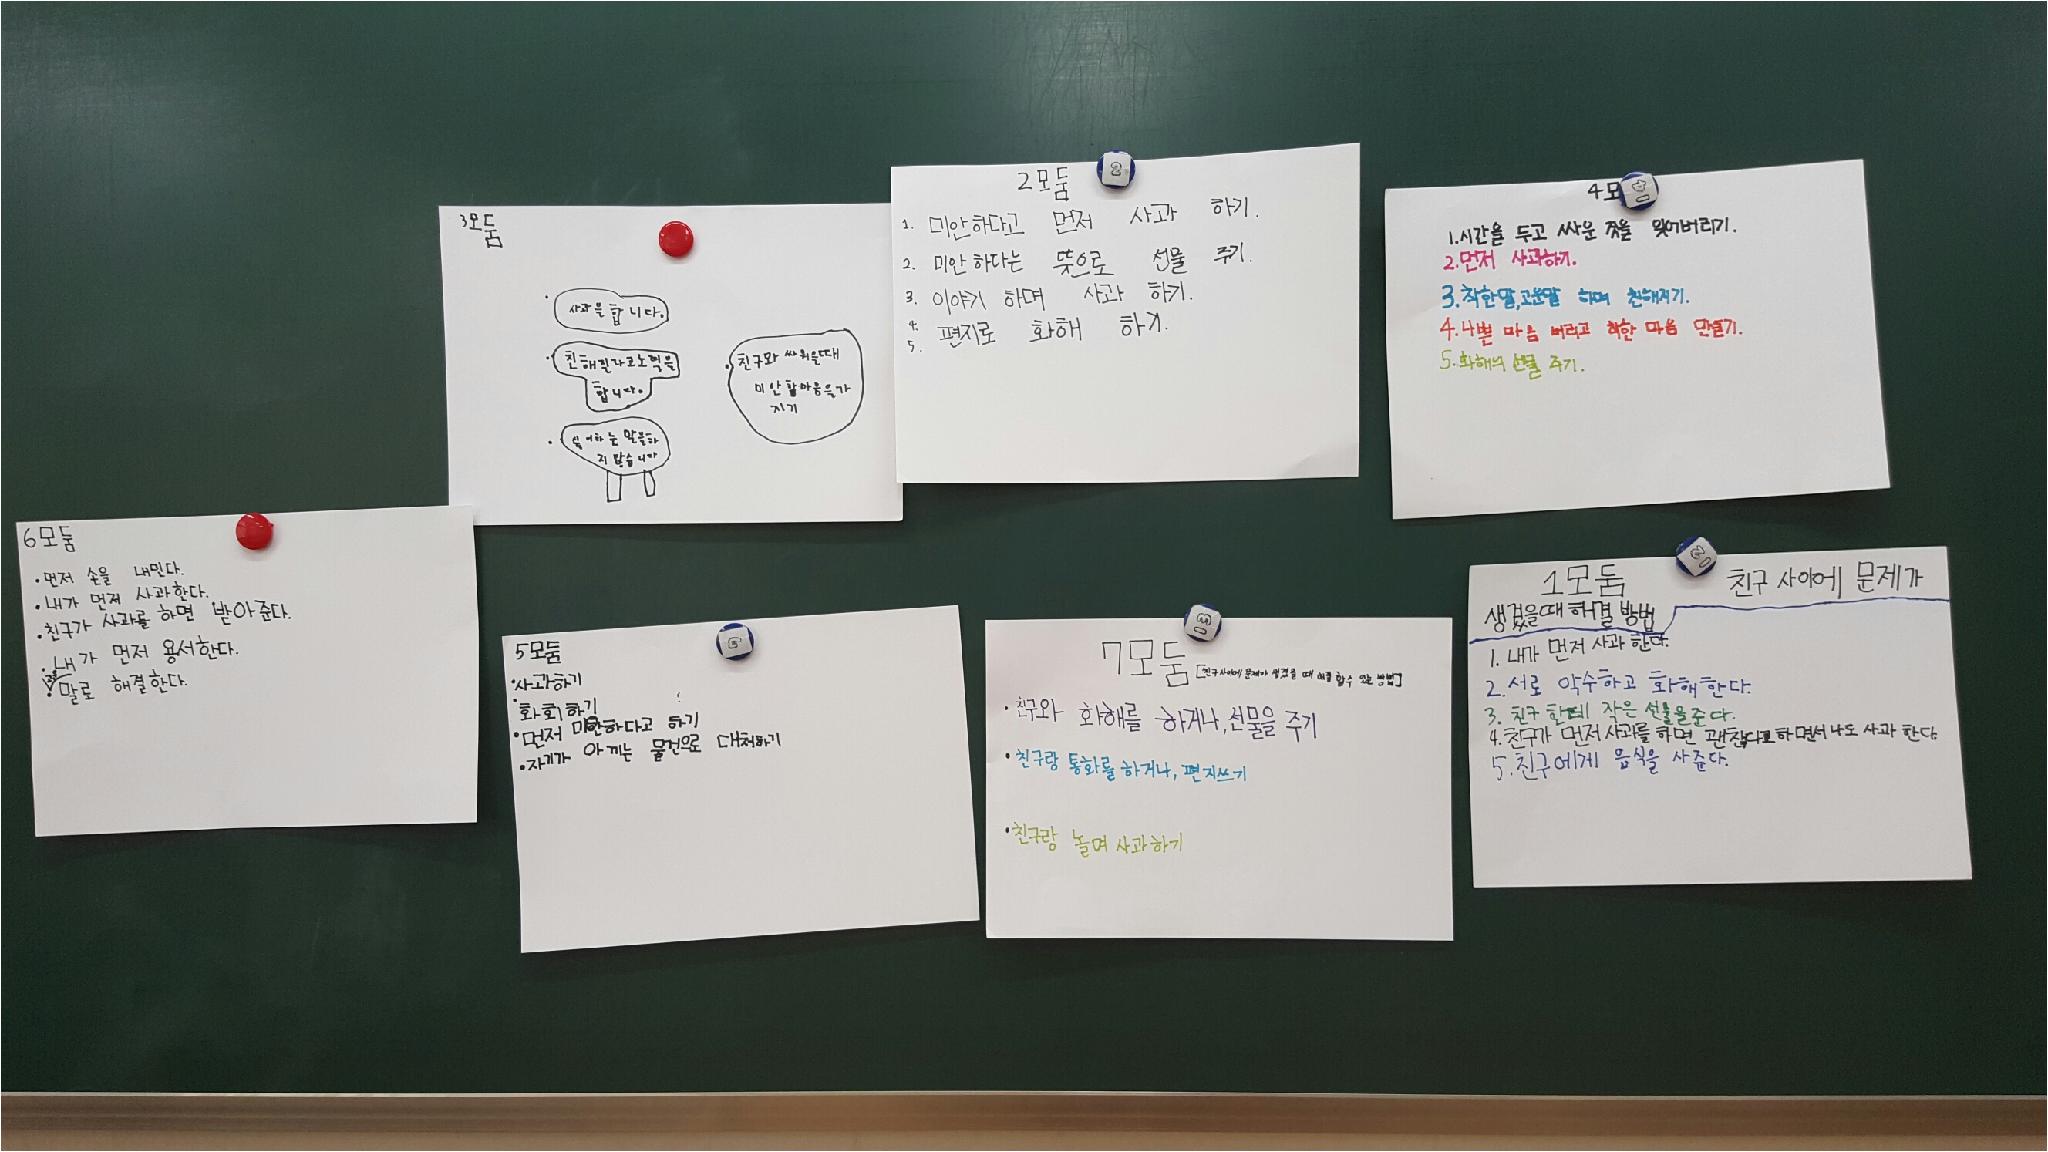 3모둠
사과를 합니다.
친해질라고노력을
합니다.
싫어하는 말을하
지 않습니다
친구와 싸워을때
미안할마음을가
지기
2모둠
1. 미안하다고 먼저 사과 하기.
2. 미안하다는 뜻으로 선물 주기.
3. 이야기 하며 사과 하기.
4. 편지로 화해 하기.
5.
4모
1.시간을 두고 싸운 것을 잊어버리기.
2.먼저 사과하기.
3.착한말,고운말 하며 친해지기.
4.나쁜 마음 버리고 착한 마음 만들기.
5.화해의 선물 주기.
6모둠
·먼저 손을 내민다.
·내가 먼저 사과한다.
·친구가 사과를 하면 받아준다.
·내가 먼저 용서한다.
·말로 해결한다.
5모둠
·사과하기
·화회하기
·먼저 미안하다고 하기
·자기가 아끼는 물건으로 대처하기
7모둠 [친구사이에 문제가 생겼을 때 해결 할수 있는 방법]
·친구와 화해를 하거나,선물을 주기
·친구랑 통화를 하거나, 편지쓰기
·친구랑 놀며 사과하기
1모둠 친구 사이에 문제가
생겼을때 해결 방법
1. 내가 먼저 사과 한다.
2. 서로 악수하고 화해한다.
3. 친구 한테 작은 선물을준다.
4.친구가 먼저사과를 하면 괜찮다고하면서 나도 사과 한다.
5.친구에게 음식을 사준다.